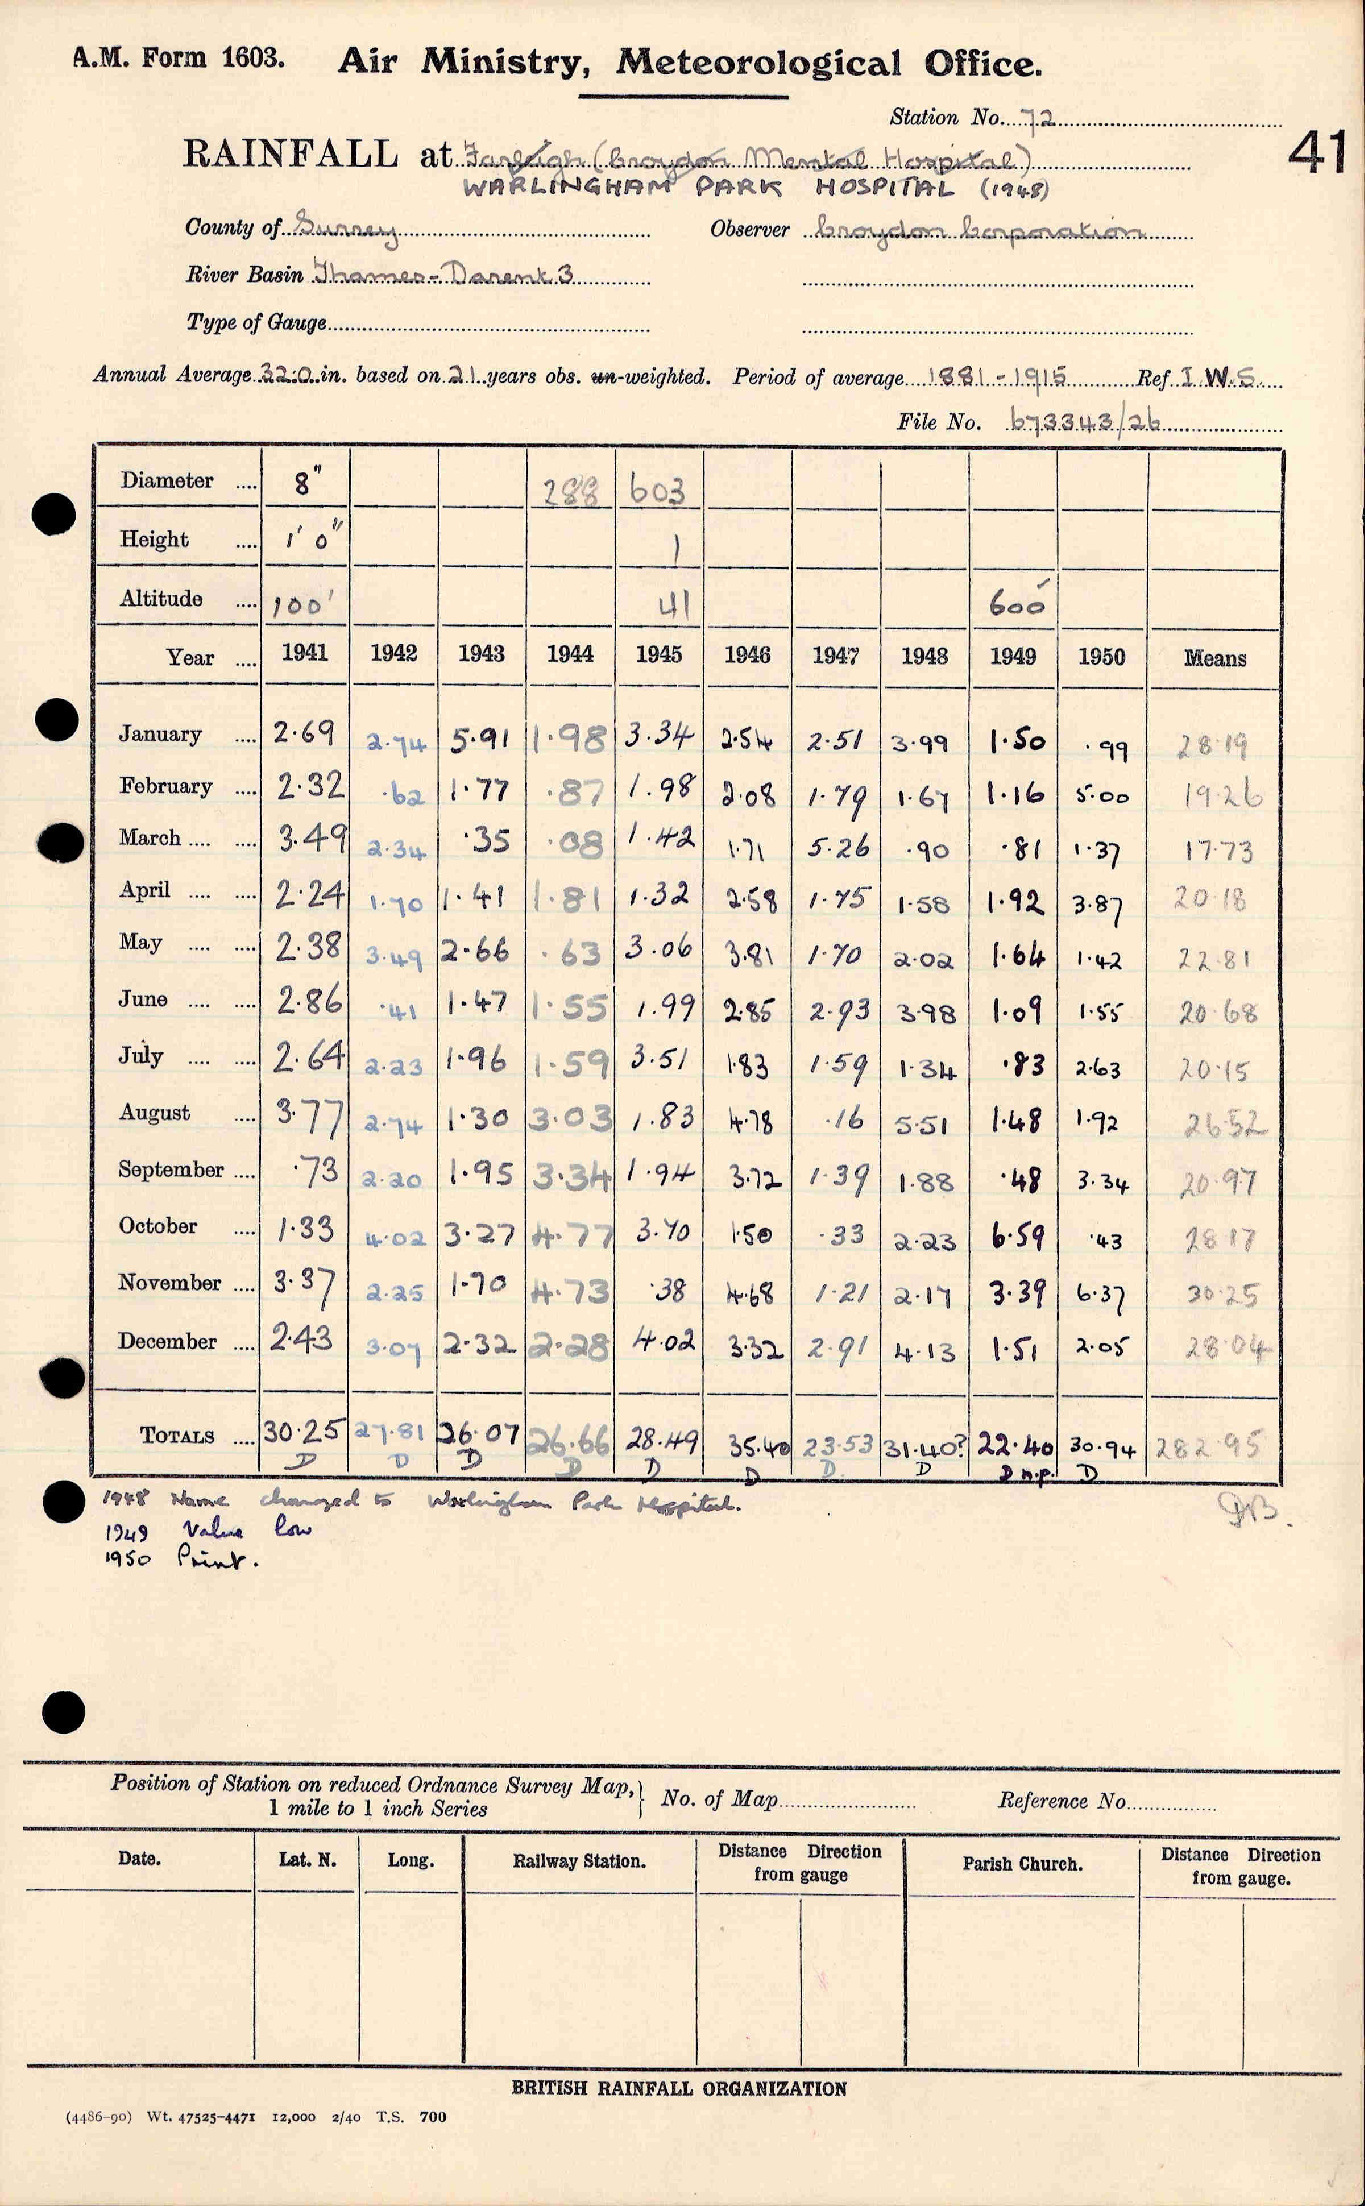 A.M. Form 1603. Air Ministry, Meteorological Office.
Station No. 72
41
RAINFALL at Farleigh (Croydon Mental Hospital)
WARLINGHAM PARK HOSPITAL (1948)
County of Surrey Observer Croydon Corporation
River Basin Thames-Darent 3
Type of Gauge
Annual Average 32.0 in. based on 21 years obs. un-weighted. Period of average 1881-1915 Ref I.W.S.
File No. 673343/26
Diameter .... 8" 288 603
Height .... 1' 0" 1
Altitude .... 100' 41 600'
Year .... 1941 1942 1943 1944 1945 1946 1947 1948 1949 1950 Means
January .... 2.69 2.74 5.91 1.98 3.34 2.54 2.51 3.99 1.50 .99 28.19
February .... 2.32 .62 1.77 .87 1.98 2.08 1.79 1.67 1.16 5.00 19.26
March .... .... 3.49 2.34 .35 .08 1.42 1.71 5.26 .90 .81 1.37 17.73
April .... .... 2.24 1.70 1.41 1.81 1.32 2.58 1.75 1.58 1.92 3.87 20.18
May .... .... 2.38 3.49 2.66 .63 3.06 3.81 1.70 2.02 1.64 1.42 22.81
June .... .... 2.86 .41 1.47 1.55 1.99 2.85 2.93 3.98 1.09 1.55 20.68
July .... .... 2.64 2.23 1.96 1.59 3.51 1.83 1.59 1.34 .83 2.63 20.15
August .... 3.77 2.74 1.30 3.03 1.83 4.78 .16 5.51 1.48 1.92 26.52
September .... .73 2.20 1.95 3.34 1.94 3.72 1.39 1.88 .48 3.34 20.97
October .... 1.33 4.02 3.27 4.77 3.70 1.50 .33 2.23 6.59 .43 28.17
November .... 3.37 2.25 1.70 4.73 .38 4.68 1.21 2.17 3.39 6.37 30.25
December .... 2.43 3.07 2.32 2.28 4.02 3.32 2.91 4.13 1.51 2.05 28.04
TOTALS .... 30.25 27.81 26.07 26.66 28.49 35.40 23.53 31.40? 22.40 30.94 282.95
D D D D D D D D D n.p. D
1948 Name changed to Warlingham Park Hospital.
1949 Value low
1950 Print.
Position of Station on reduced Ordnance Survey Map, } No. of Map Reference No.
1 mile to 1 inch Series
Date. Lat. N. Long. Railway Station. Distance Direction from gauge Parish Church. Distance Direction from gauge.
BRITISH RAINFALL ORGANIZATION
(4486-90) Wt. 47525-4471 12,000 2/40 T.S. 700